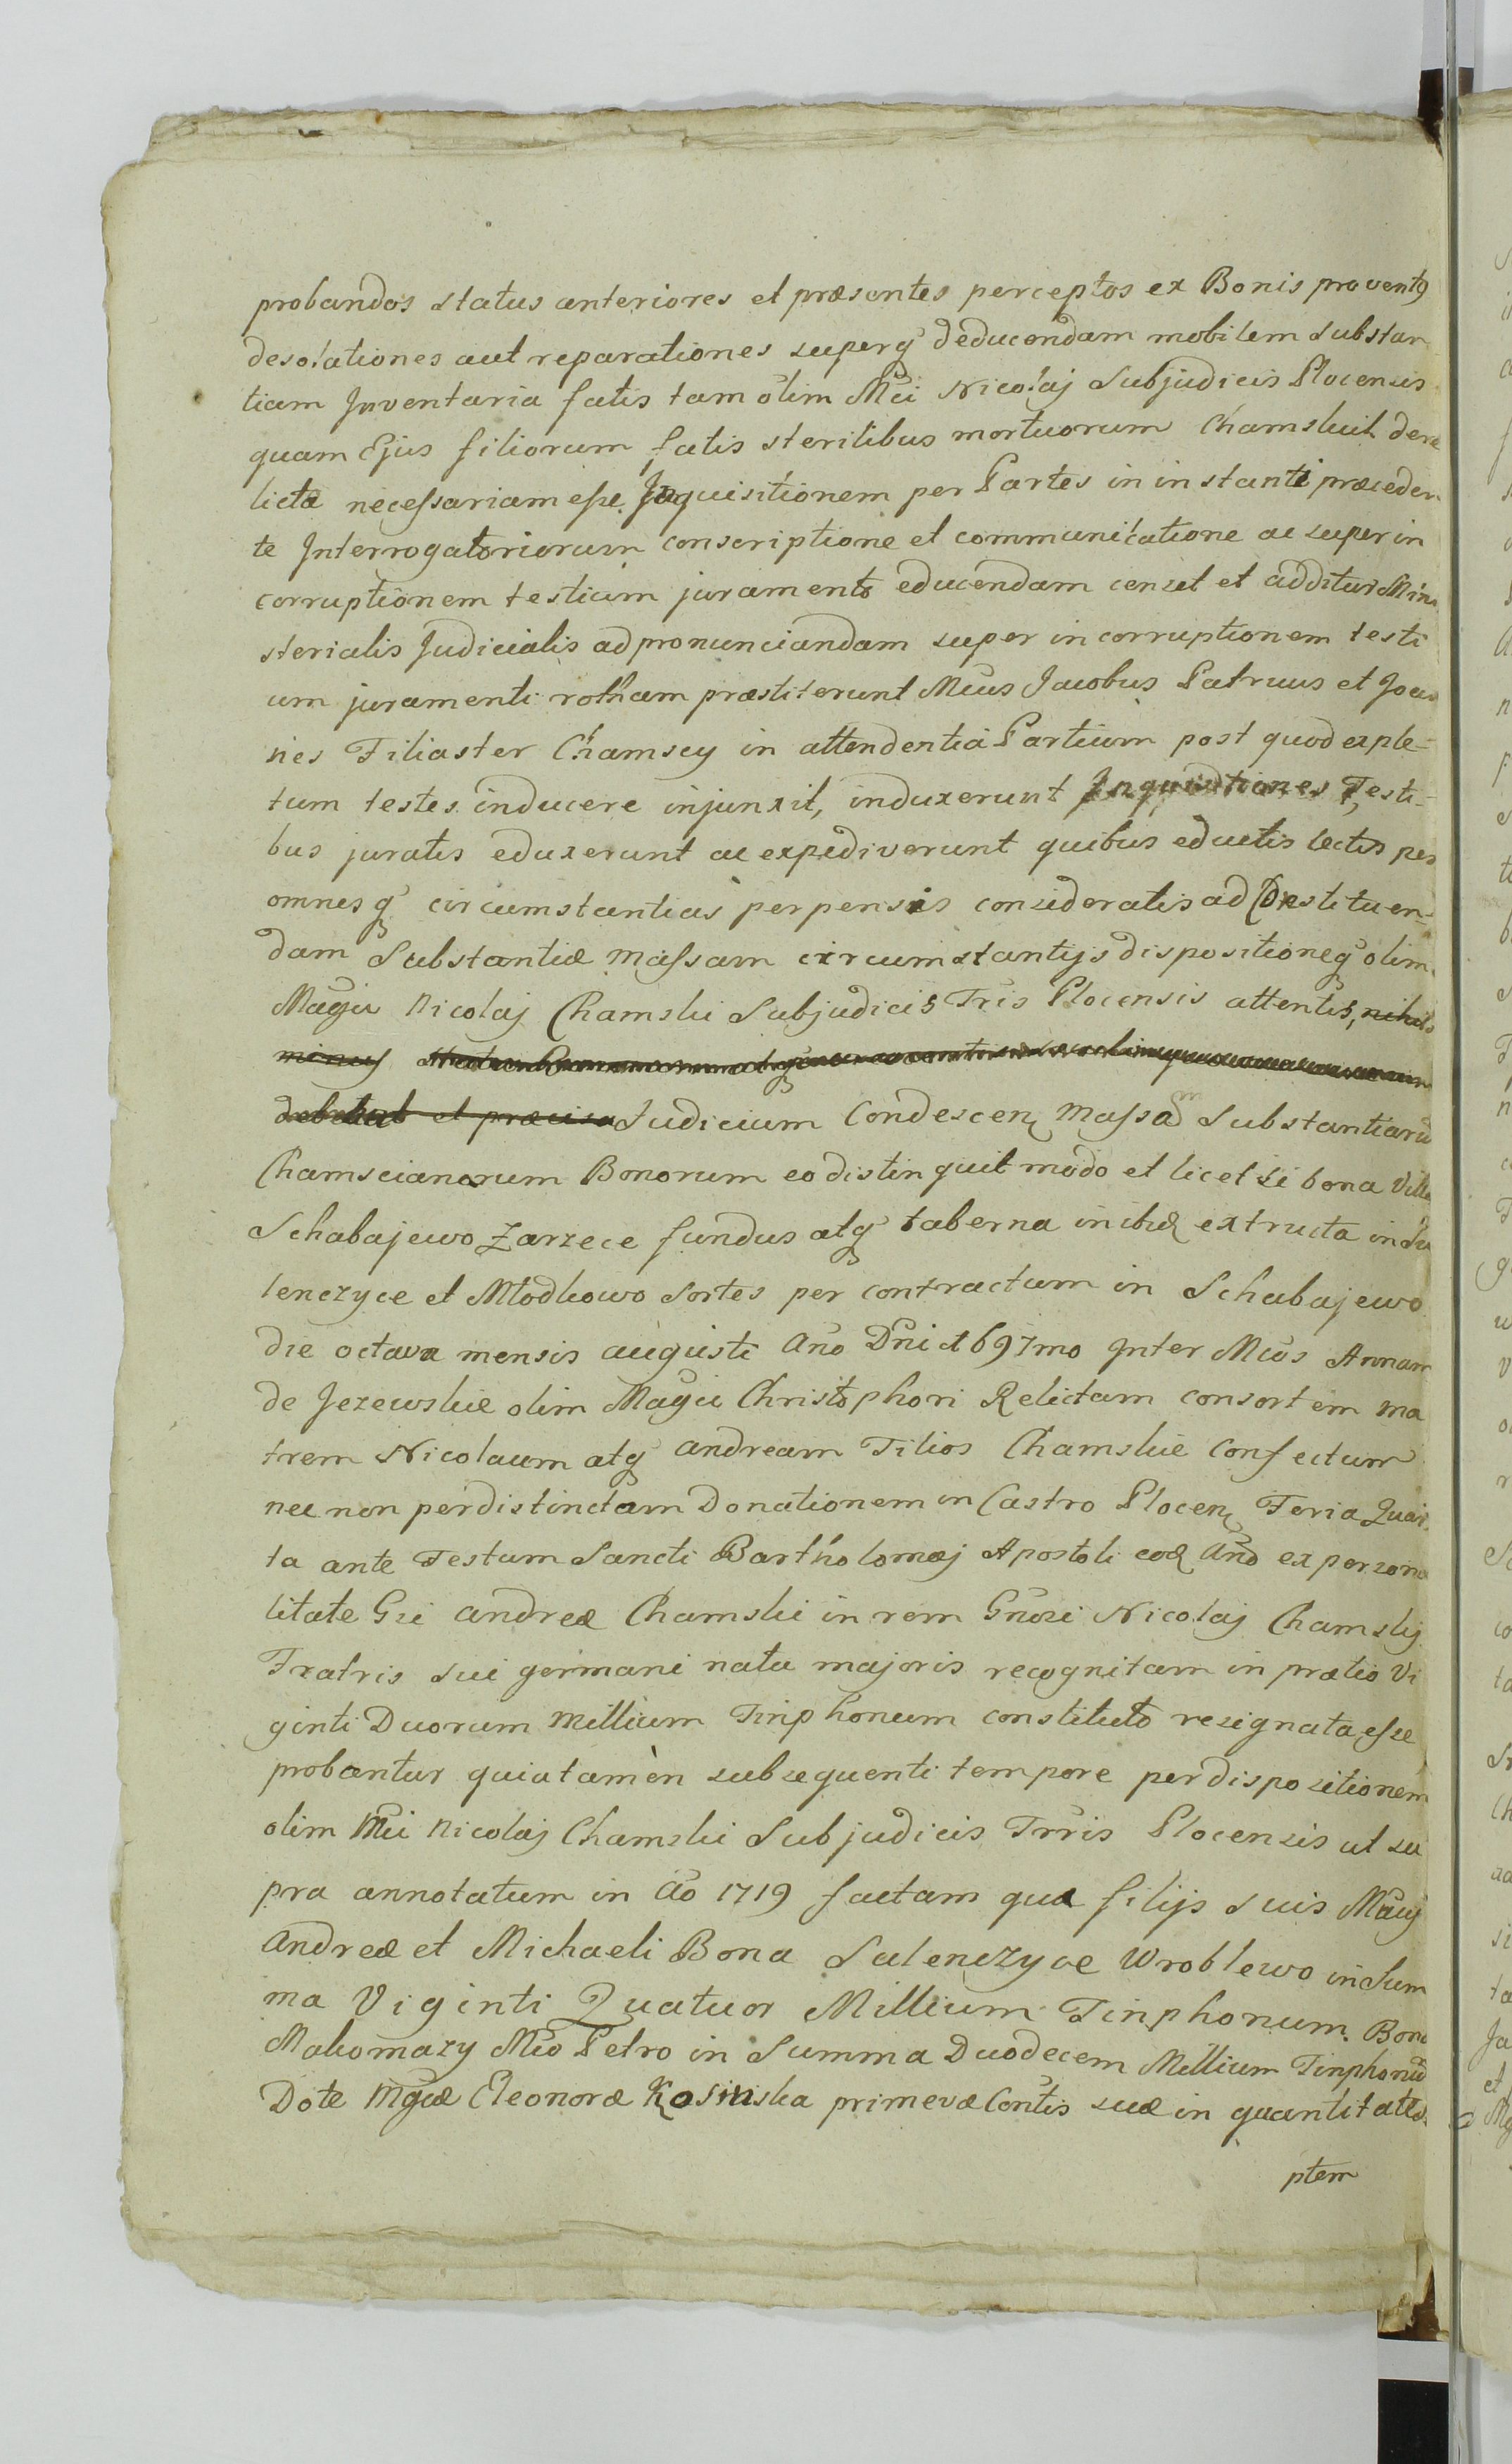 probandos status anteriores et præsentes perceptos ex Bonis proventq
desolationes aut reparationes superq deducendam mobilem substan
tiam Inventaria fatis tam olim Mci Nicolaj Subjudicis Plocensis
quam Ejus filiorum fatis sterilibus mortuorum Chamskich dere
licta necessariam esse Inquisitionem per Partes in instanti præceden
te Interrogatoriorum conscriptione et communicatione ac super in
corruptionem testium juramento educendam censet et additur Mini
sterialis Judicialis ad pronunciandam super incorruptionem testi
um juramenti rotham præstiterunt Mcus Jacobus Patruus et Joan
nes Filiaster Chamscy in attendentia Partium post quod exple=
tum testes inducere injunxit, induxerunt Inquisitiones, Testi=
bus juratis eduxerunt ac expediverunt quibus eductis lectis per
omnesq circumstantias perpensis consideratis ad Constituen=
dam Substantiæ Massam circumstantijs dispositioneq olim
Magci Nicolaj Chamski Subjudicis Tris Plocensis attentis, nihilo
minus
debebat et præcisa Judicium Condescen Massam Substantiaru
Chamscianorum Bonorum eo distinguit modo et licet si bona Villa
Schabajewo Zarzece fundus atq taberna inibi extructa in Su
lenczyce et Młodkowo Sortes per contractum in Schabajewo
die octava mensis augusti Ano Dni 1697mo Inter Mcos Annam
de Jezewskie olim Magci Christophori Relictam consortem ma
trem Nicolaum atq andream Filios Chamskie Confectum
nec non per distinctam Donationem in Castro Plocen Feria Quar
ta ante Festum Sancti Bartholomæj Apostoli eod Ano ex persona
litate Gsi andreæ Chamski in rem Gnosi Nicolaj Chamskj
Fratris sui germani natu majoris recognitam in prætio Vi
ginti Duorum Millium Tinphonum constituto resignata esse
probantur quia tamèn subsequenti tempore per dispositionem
olim Mci Nicolaj Chamski Subjudicis Trris Plocensis ut su
pra annotatum in Ao 1719 factam qua filijs suis Mcis
Andreæ et Michaeli Bona Sulenczyce Wroblewo in Sum
ma Viginti Quatuor Millium Tinphonum. Bona
Makomazy Mco Petro in Summa Duodecem Millium Tinphonu
Dote Mgcæ Eleonoræ Kosinska primevæ Contis suæ in quantitate
ptem